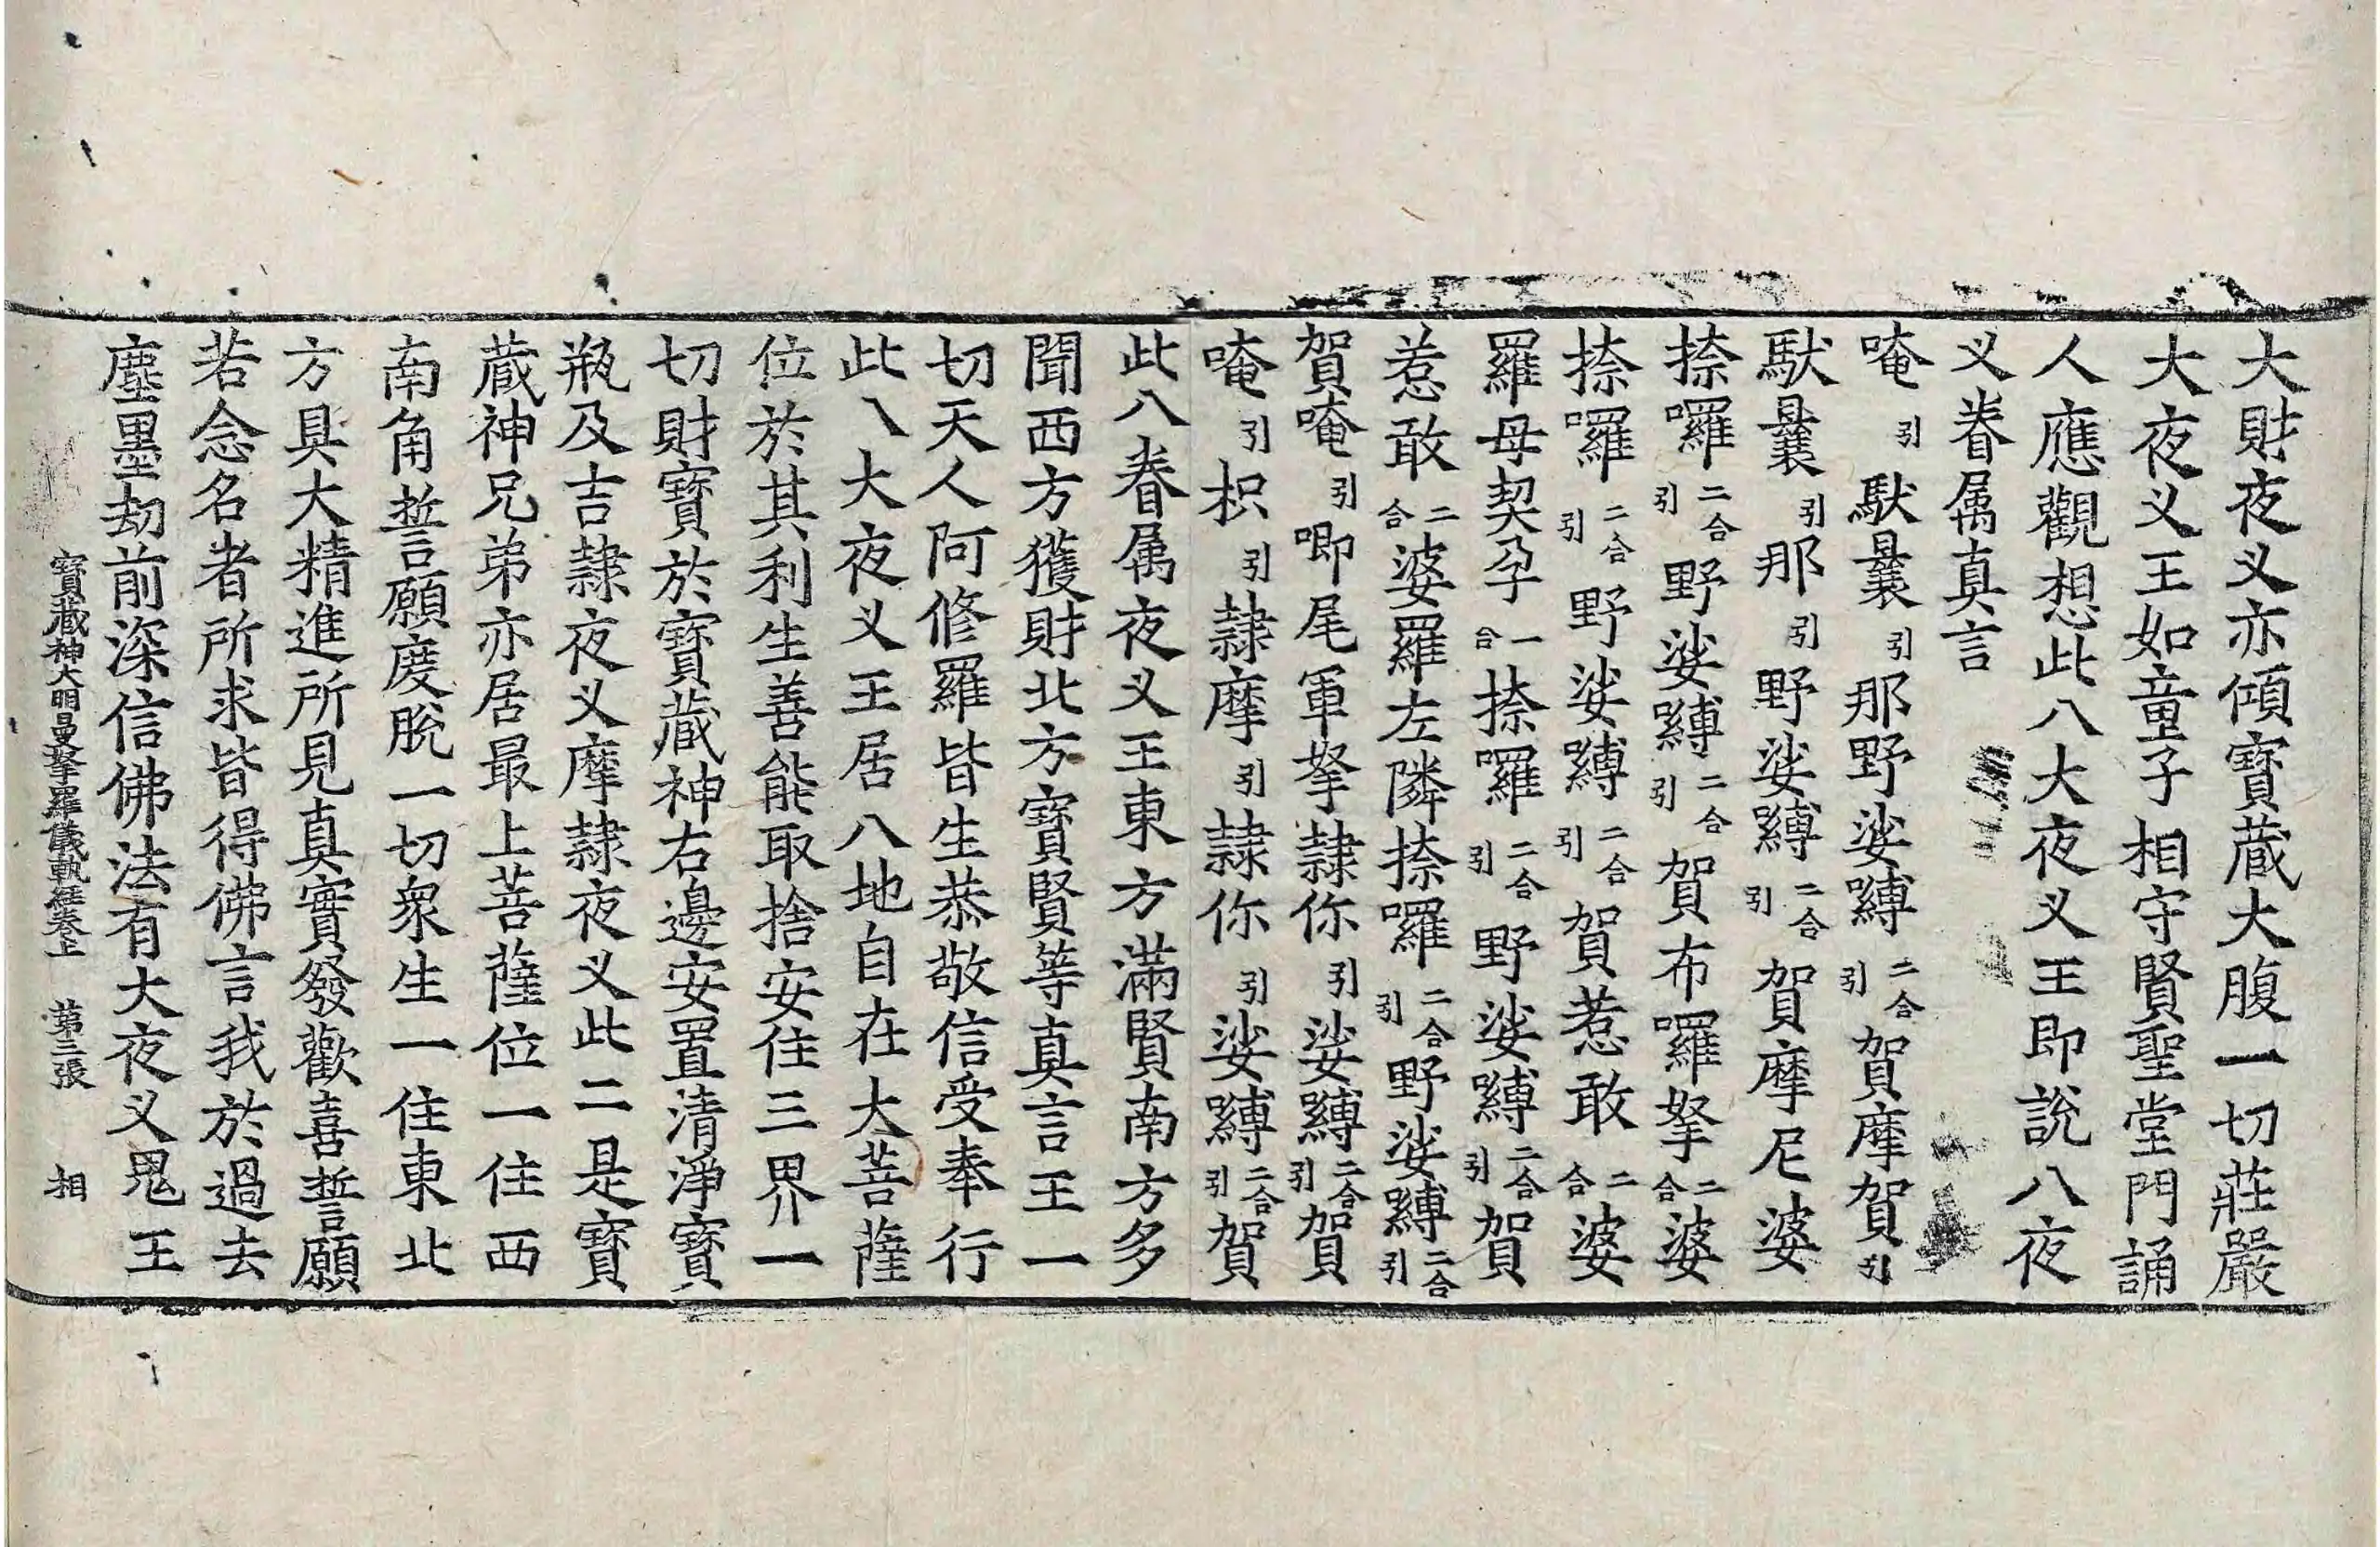 大財夜义亦傾寶蔵大腹一切莊嚴
大夜义王如童子相守賢聖堂門誦
人應觀想此八大夜义王即說八夜
义眷属真言
唵引馱曩引那野娑嚩二合引賀摩賀引
馱曩引那引野娑嚩二合引賀摩尼婆
捺囉二合引野娑嚩二合引賀布囉拏二合婆
捺囉二合引野娑嚩二合引賀惹敢二合婆
羅母契孕一合捺囉二合引野娑嚩二合引賀
惹敢二合婆羅左隣捺囉二合引野娑嚩二合引
賀唵引唧尾軍拏隷你引娑嚩二合引賀
唵引枳引隷摩引隷你引娑嚩二合引賀
此八眷属夜义王東方滿賢南方多
聞西方獲財北方寶賢等真言王一
切天人阿修羅皆生恭敬信受奉行
此八大夜义王居八地自在大菩薩
位於其利生善能取捨安住三界一
切財寶於寶蔵神右邊安置清淨寶
瓶及吉隷夜义摩隷夜义此二是寶
蔵神兄弟亦居最上菩薩位一住西
南角誓願度脫一切衆生一住東北
方具大精進所見真實發歡喜誓願
若念名者所求皆得佛言我於過去
塵墨劫前深信佛法有大夜义鬼王
寶蔵神大明曼拏羅儀軌經卷上 第三張 相